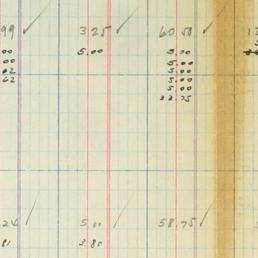 99 3.25 60.50 1
00 5.00 5.00
00 5.00
02 5.00
22 5.00
5.00
22.75
24 5.00 58.75
81 3.80